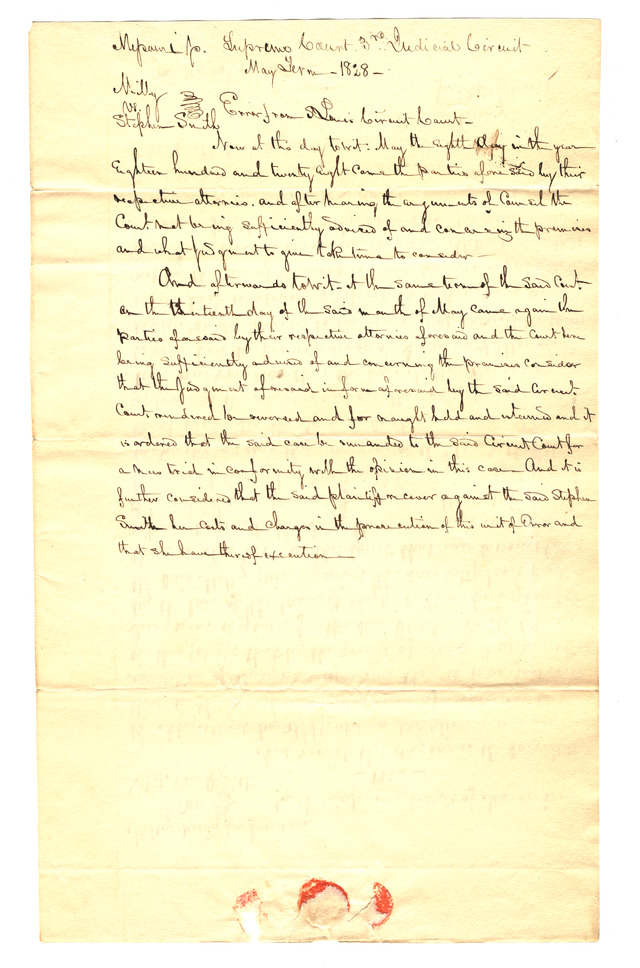 Missouri Sc. Supreme Court 3rd Judicial Circuit
May Term - 1828 -
Milly
vs.
Stephen Smith
Error from St Louis Circuit Court -
Now at this day towit: May the eighth day in the year
Eighteen hundred and twenty eight came the parties aforesaid by their
respective attornies. and after hearing the arguments of Counsel the
Court not being sufficiently advised of and concerning the premises
and what Judgment to give take time to consider -
And afterwards towit - at the same term of the said Court
on the thirteenth day of the said month of May came again the
parties aforesaid by their respective attornies aforesaid and the Court here
being sufficiently advised of and concerning the premises consider
that the Judgment aforesaid in form aforesaid by the said Circuit
Court rendered be reversed and for naught held and esteemed and it
is ordered that the said case be remanded to the said Circuit Court for
a new trial in conformity with the opinion in this case - And it is
further considered that the said plaintiff recover against the said Stephen
Smith her costs and charges in the prosecution of this writ of Error and
that she have thereof execution -